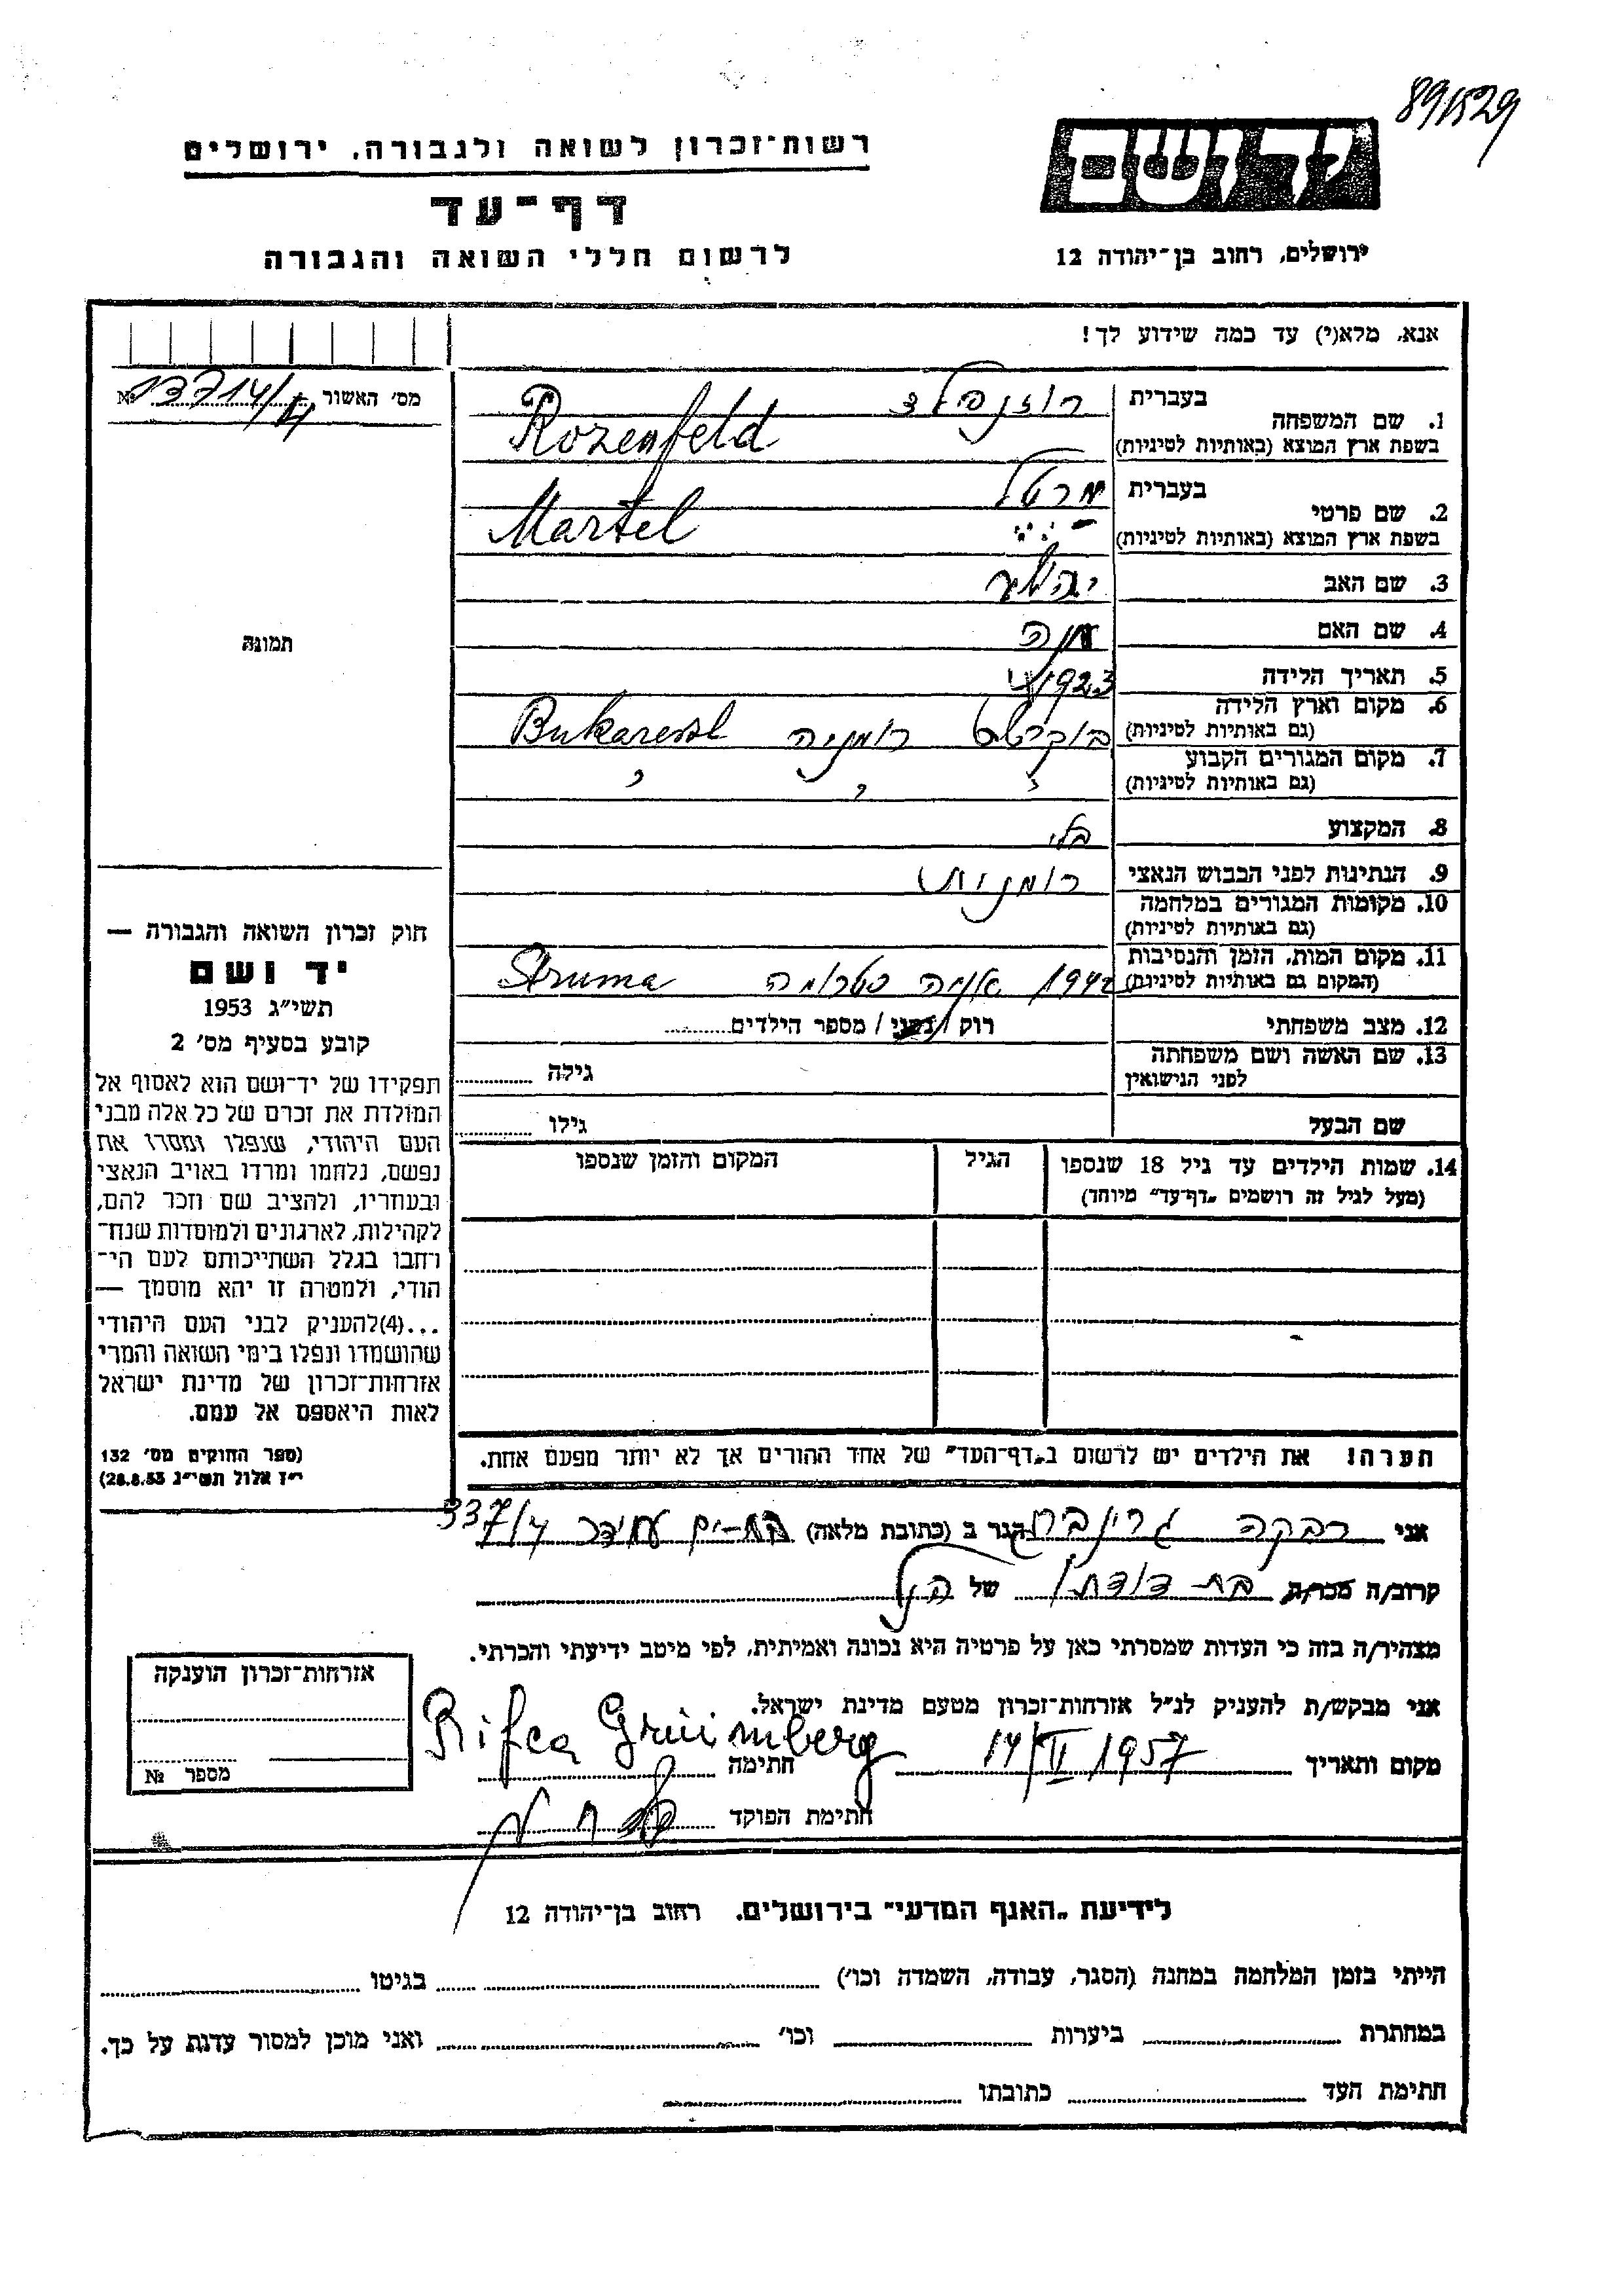 891529
רשות־זכרון לשואה ולגבורה, ירושלים
דף־עד
לרשום חללי השואה והגבורה
ידושם
ירושלים, רחוב בן־יהודה 12
אנא, מלא(י) עד כמה שידוע לך!
מס' האשור № 13714/
1. שם המשפחה
בעברית רוזנפלד
בשפת ארץ המוצא (באותיות לטיניות) Rozenfeld
2. שם פרטי
בעברית מרטל
בשפת ארץ המוצא (באותיות לטיניות) Martel
3. שם האב
4. שם האם
5. תאריך הלידה 1923
6. מקום וארץ הלידה
(גם באותיות לטיניות) בוקרשט רומניה Bukarest
7. מקום המגורים הקבוע
(גם באותיות לטיניות) " " "
8. המקצוע בלי
9. הנתינות לפני הכבוש הנאצי רומנית
10. מקומות המגורים במלחמה
(גם באותיות לטיניות)
11. מקום המות, הזמן והנסיבות
(המקום גם באותיות לטיניות) 1942 אניה סטרומה Struma
12. מצב משפחתי רוק / נשוי / מספר הילדים
13. שם האשה ושם משפחתה
לפני הנישואין גילה
שם הבעל גילו
14. שמות הילדים עד גיל 18 שנספו
(מעל לגיל זה רושמים „דף־עד" מיוחד)
הגיל
המקום והזמן שנספו
תמונה
חוק זכרון השואה והגבורה —
יד ושם
תשי"ג 1953
קובע בסעיף מס' 2
תפקידו של יד־ושם הוא לאסוף אל
המולדת את זכרם של כל אלה מבני
העם היהודי, שנפלו ומסרו את
נפשם, נלחמו ומרדו באויב הנאצי
ובעוזריו, ולהציב שם וזכר להם,
לקהילות, לארגונים ולמוסדות שנח־
רבו בגלל השתייכותם לעם הי־
הודי, ולמטרה זו יהא מוסמך —
...(4)להעניק לבני העם היהודי
שהושמדו ונפלו בימי השואה והמרי
אזרחות־זכרון של מדינת ישראל
לאות היאספם אל עמם.
(ספר החוקים מס' 132
י"ז אלול תשי"ג 28.8.53)
הערה! את הילדים יש לרשום ב„דף־העד" של אחד ההורים אך לא יותר מפעם אחת.
אני רבקה גרינברג הגר ב (כתובת מלאה) בת־ים עמידר 337/4
קרוב/ה מכר/ה בת דודתו של הנ"ל
מצהיר/ה בזה כי העדות שמסרתי כאן על פרטיה היא נכונה ואמיתית, לפי מיטב ידיעתי והכרתי.
אני מבקש/ת להעניק לנ"ל אזרחות־זכרון מטעם מדינת ישראל.
מקום ותאריך 14/II 1957 חתימה Rifca Grüimberg
חתימת הפוקד
אזרחות־זכרון הוענקה
מספר №
לידיעת „האגף המדעי" בירושלים, רחוב בן־יהודה 12
הייתי בזמן המלחמה במחנה (הסגר, עבודה, השמדה וכו') בגיטו
במחתרת ביערות וכו' ואני מוכן למסור עדות על כך.
חתימת העד כתובתו